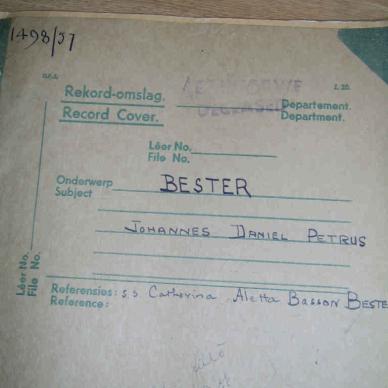 1498/57
Rekord-omslag.
Record Cover.
DECEASED
Departement.
Department.
Lêer No.
File No.
Onderwerp
Subject
BESTER
JOHANNES DANIEL PETRUS
Lêer No.
File No.
Referensies: s.s Catherina Aletta Basson BESTE
Reference: